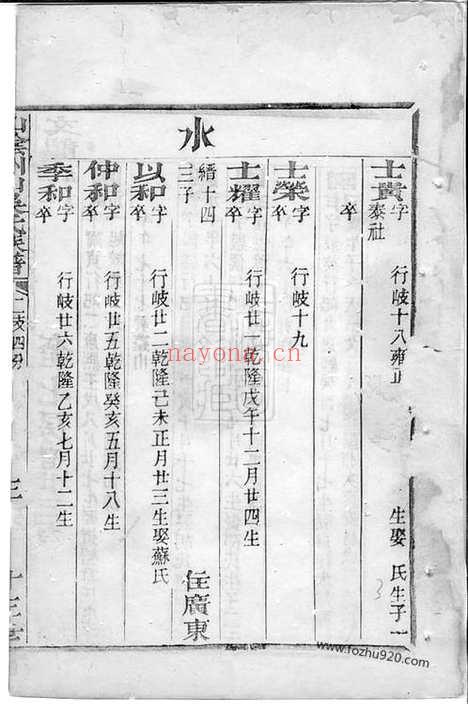 水
士貴字泰社 行岐十八雍正 生娶 氏生子一
卒
士榮字 行岐十九
卒
士耀字 行岐廿一乾隆戊午十二月廿四生
卒
縉十四
三子 住廣東
以和字 行岐廿二乾隆己未正月廿三生娶蘇氏
卒
仲和字 行岐廿五乾隆癸亥五月十八生
卒
季和字 行岐廿六乾隆乙亥七月十二生
卒
族譜
nayona.cn
www.fozhu920.com